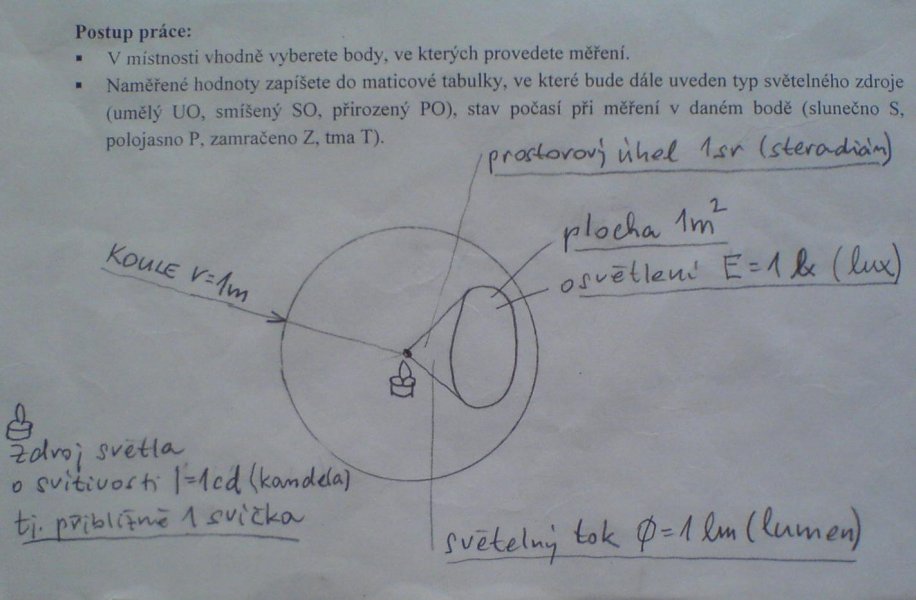 Postup práce:
▪ V místnosti vhodně vyberete body, ve kterých provedete měření.
▪ Naměřené hodnoty zapíšete do maticové tabulky, ve které bude dále uveden typ světelného zdroje
(umělý UO, smíšený SO, přirozený PO), stav počasí při měření v daném bodě (slunečno S,
polojasno P, zamračeno Z, tma T).
prostorový úhel 1sr (steradián)
plocha 1m²
osvětlení E=1 lx (lux)
KOULE r=1m
zdroj světla
o svítivosti I=1cd (kandela)
tj. přibližně 1 svíčka
světelný tok ϕ=1 lm (lumen)